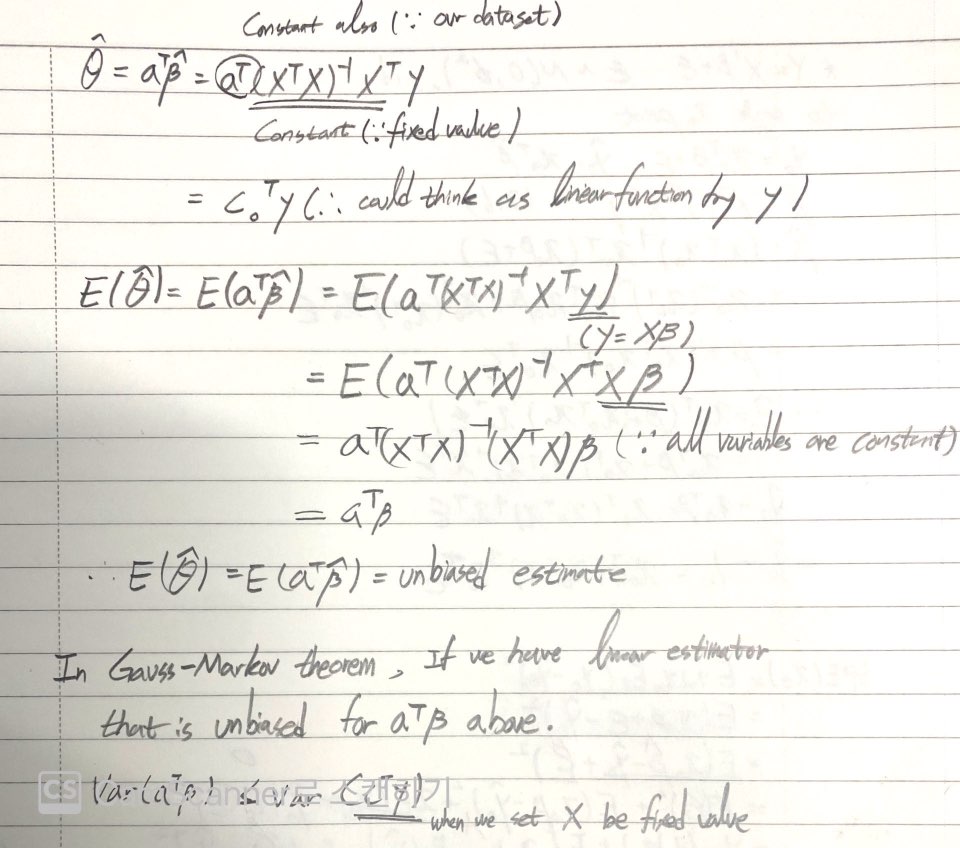 Constant also (∵ our dataset)
θ̂ = aᵀβ̂ = aᵀ(XᵀX)⁻¹Xᵀy
Constant (∵ fixed value)
= c₀ᵀy (∴ could think as linear function by y)
E(θ̂) = E(aᵀβ̂) = E(aᵀ(XᵀX)⁻¹Xᵀy)
(y = Xβ)
= E(aᵀ(XᵀX)⁻¹XᵀXβ)
= aᵀ(XᵀX)⁻¹(XᵀX)β (∵ all variables are constant)
= aᵀβ
∴ E(θ̂) = E(aᵀβ̂) = unbiased estimate
In Gauss-Markov theorem, If we have linear estimator
that is unbiased for aᵀβ above.
Var(aᵀβ̂) ≤ Var(Cᵀy)
when we set X be fixed value
CS CamScanner로 스캔하기